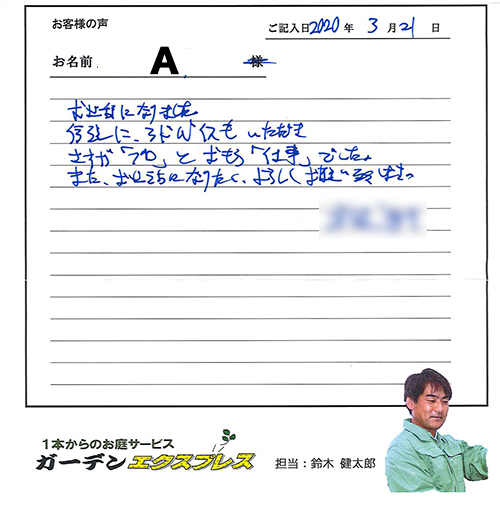 お客様の声
ご記入日2020年 3月21日
お名前 A 様
お世話になりました
も いただき
さすが「プロ」と おもう「仕事」でした。
また、お世話になりたく、よろしくお願い致します
1本からのお庭サービス
ガーデンエクスプレス
担当：鈴木 健太郎